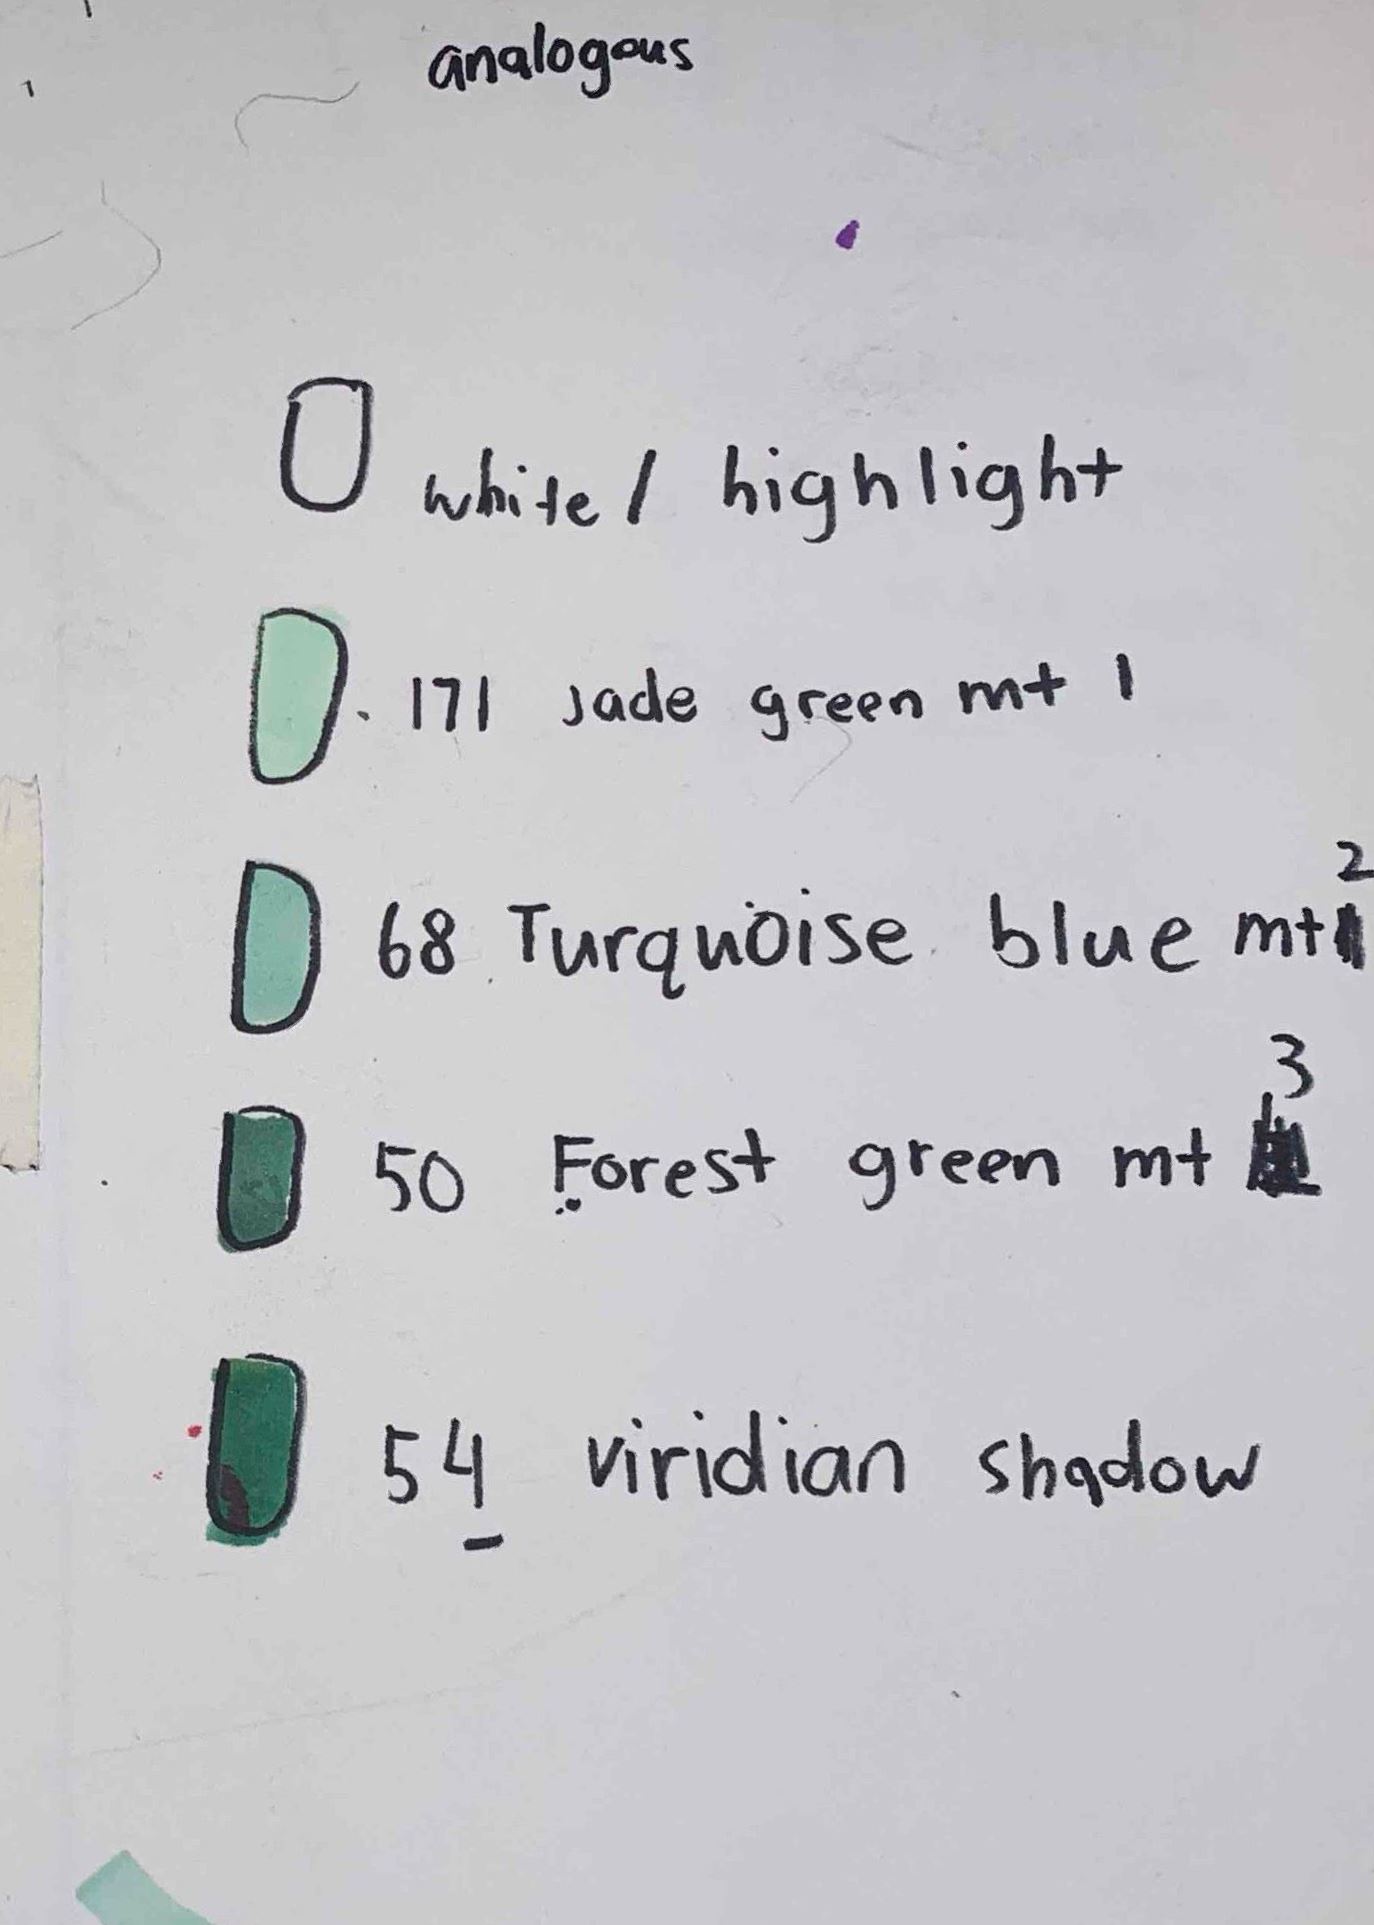 analogous
white / highlight
. 171 Jade green mt 1
68 Turquoise blue mt 2
50 Forest green mt 3
54 viridian shadow